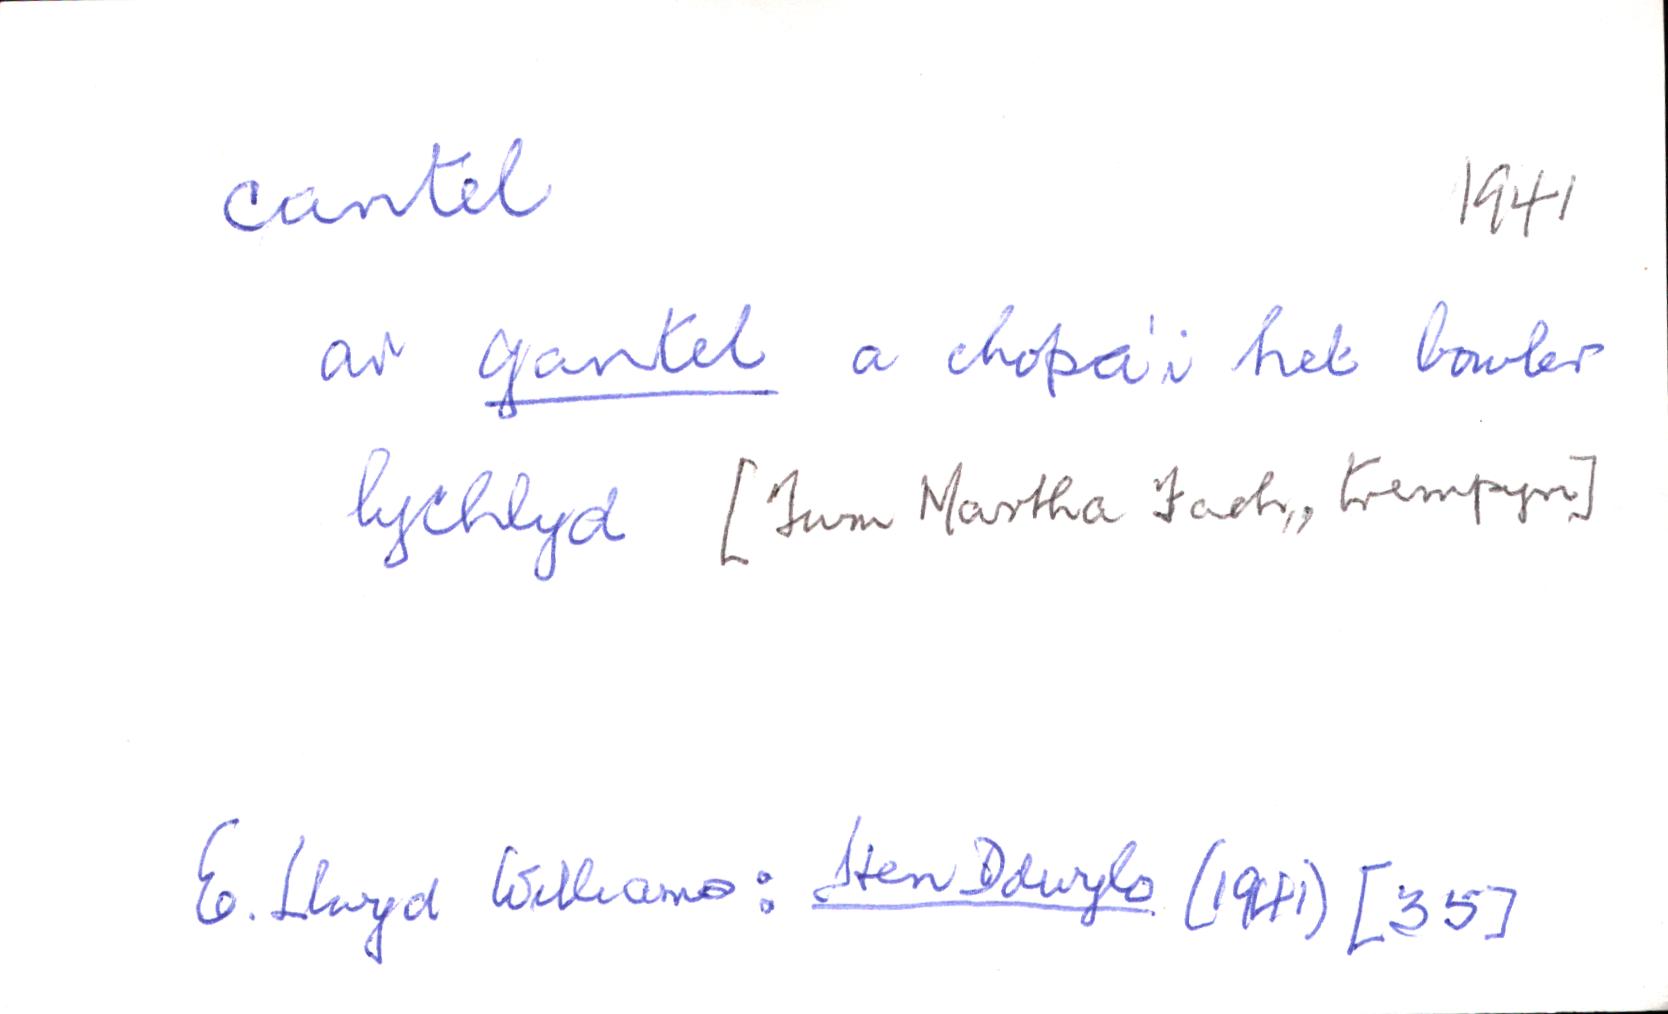 cantel 1941
ar gantel a chopa'i het bowler
lychlyd [Twm Martha Fach, trempyn]
E. Llwyd Williams: Hen Ddwylo (1941) [35]